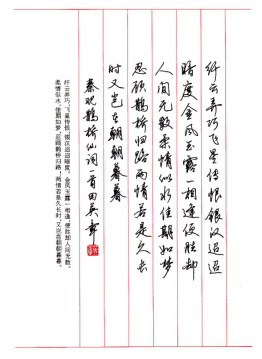 纤云弄巧飞星传恨银汉迢迢
暗度金风玉露一相逢便胜却
人间无数柔情似水佳期如梦
忍顾鹊桥归路两情若是久长
时又岂在朝朝暮暮
秦观鹊桥仙词一首田英章
纤云弄巧，飞星传恨，银汉迢迢暗度。金风玉露一相逢，便胜却人间无数。
柔情似水，佳期如梦，忍顾鹊桥归路。两情若是久长时，又岂在朝朝暮暮。